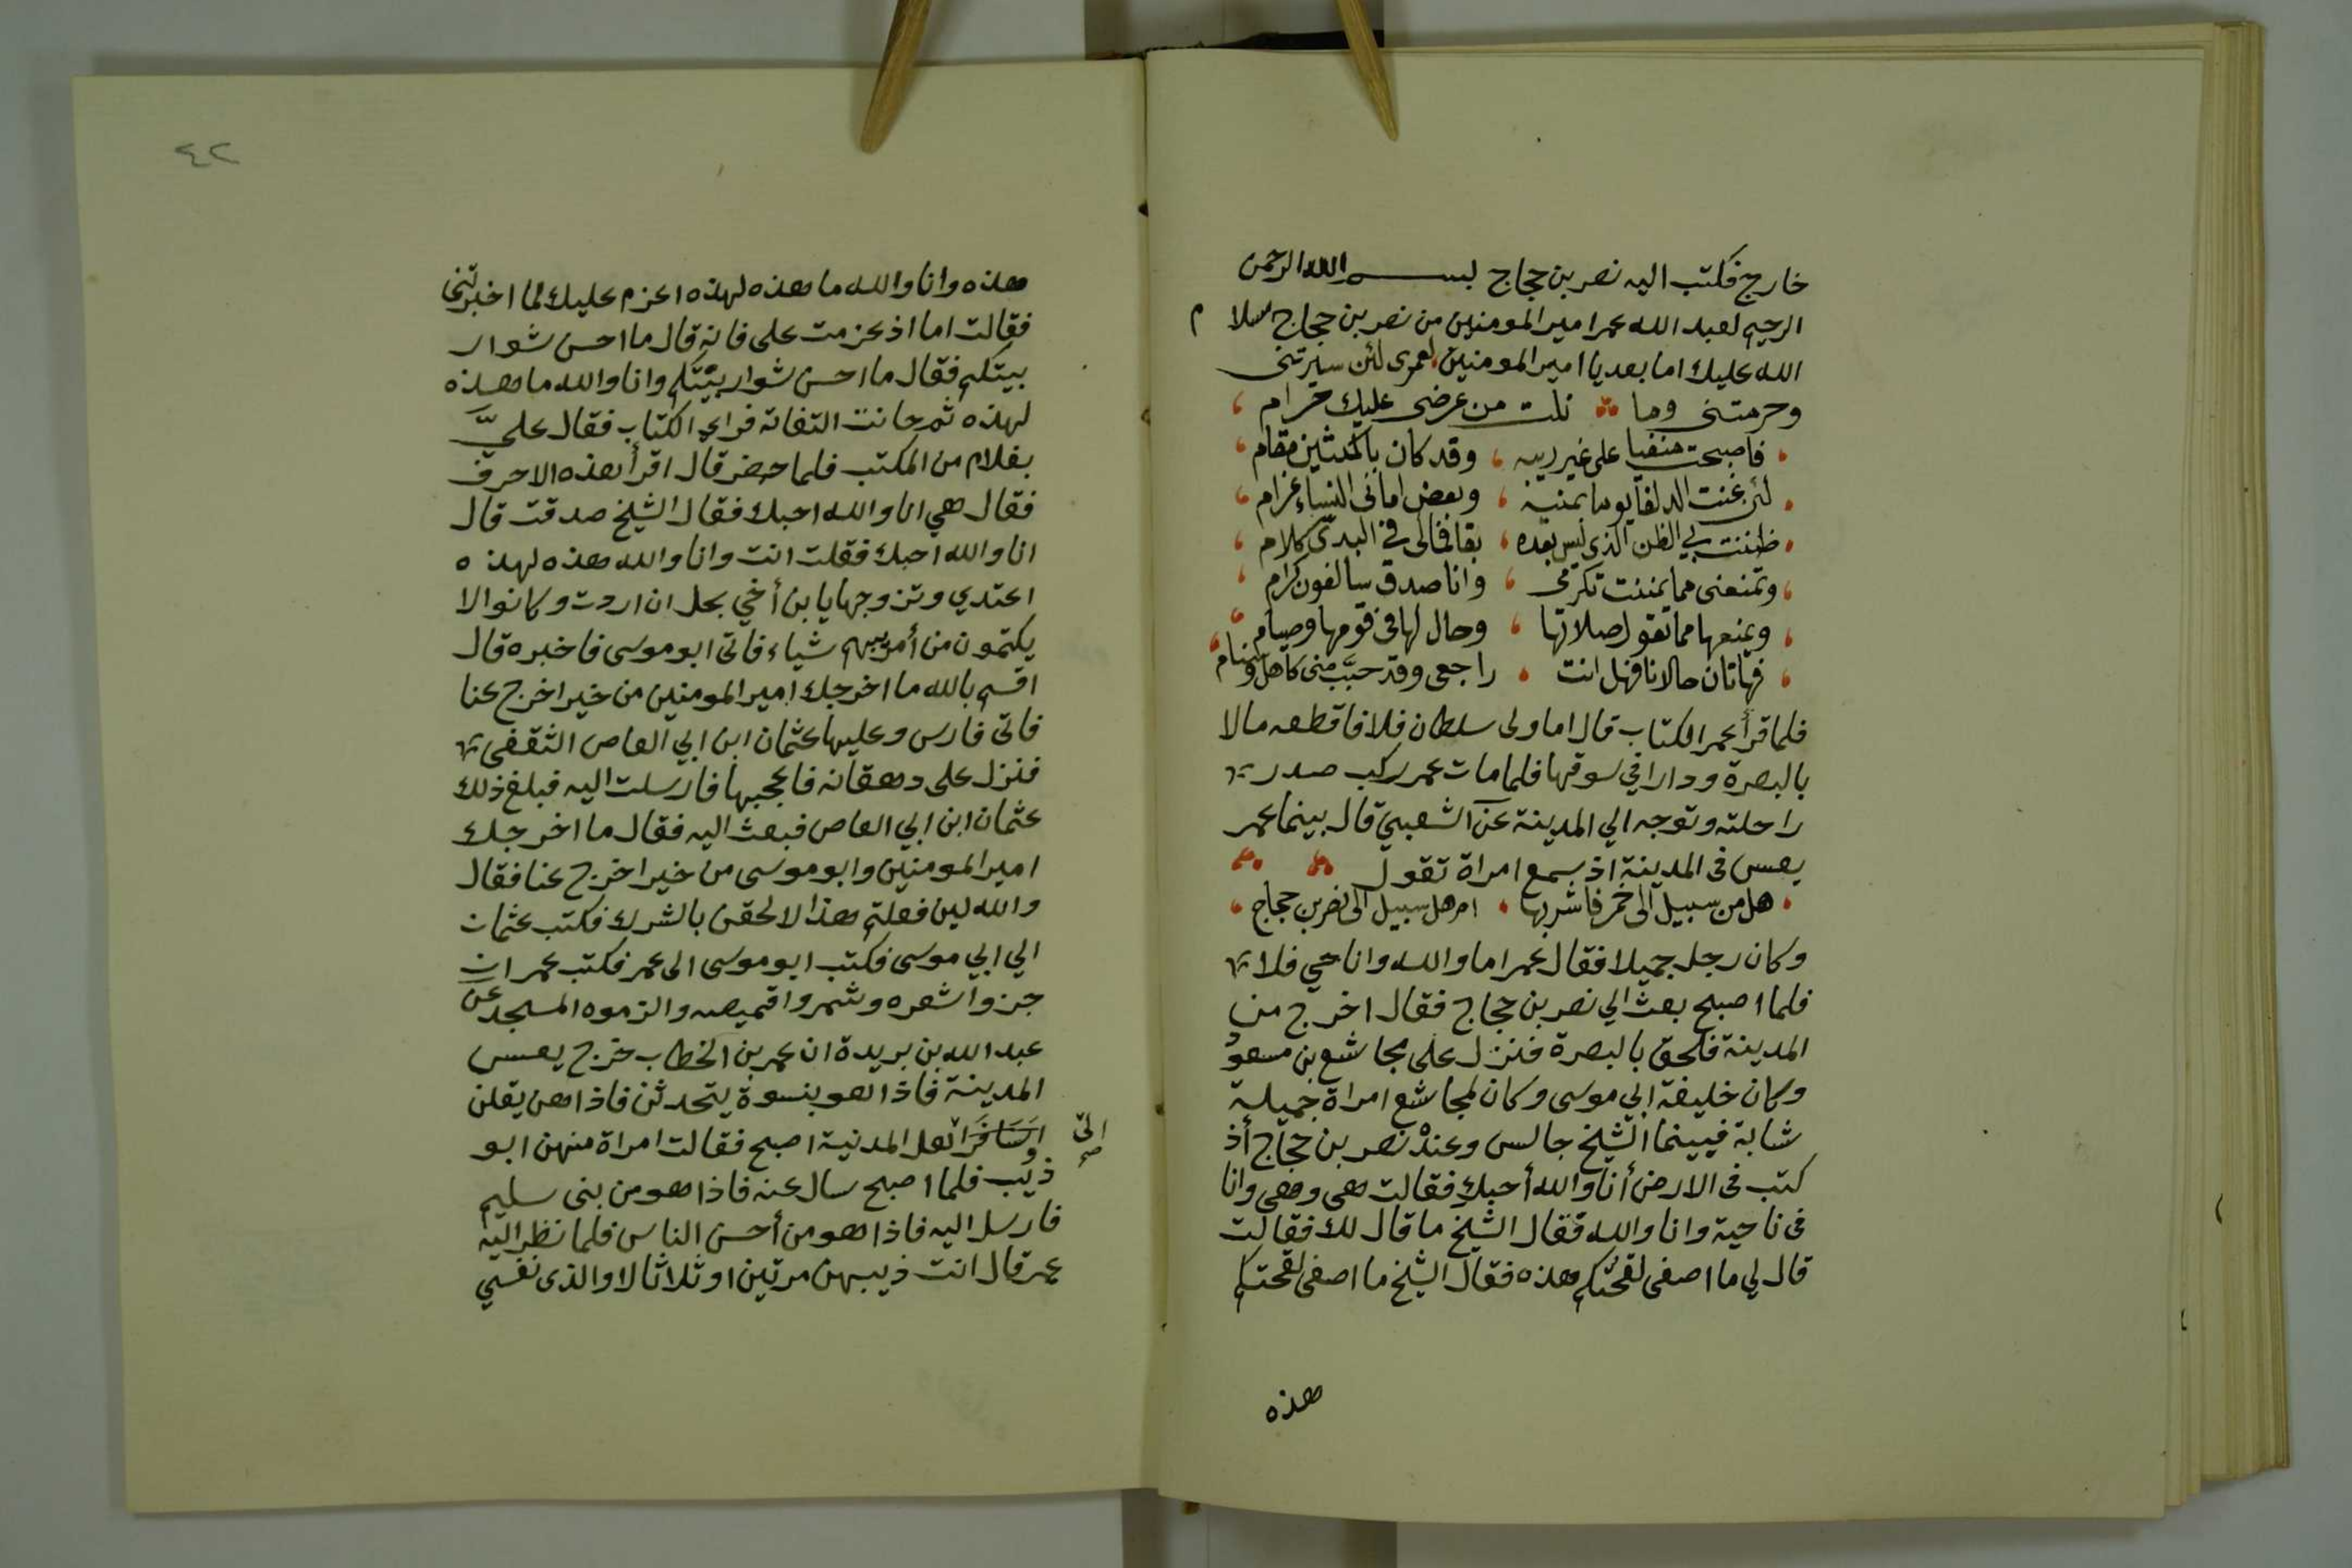 خارج فكتب اليه نصر بن حجاج بسم الله الرحمن
الرحيم لعبد الله عمر امير المومنين من نصر بن حجاج سلام
الله عليك اما بعد يا امير المومنين لعمرى لئن سيرتنى
وحرمتنى وما نلت من عرضى عليك حرام
فاصبحت منفيا على غير ريبه وقد كان بالمكتين مقام
لئن غنت الدلفا يوما بمنية وبعض امانى النساء غرام
ظننت بي الظن الذى ليس بعده بقا فمالى فى الندى كلام
وتمنعنى مما تمننت تكرمى وانا صدق سالفون كرام
ويمنعها مما تقول صلاتها وحال لها فى قومها وصيام
فهاتان حالانا فهل انت راجعى وقد حبَّ منى كاهل وسنام
فلما قرأ عمر الكتاب قال اما ولى سلطان فلا فاقطعه مالا
بالبصرة ودارا في سوقها فلما مات عمر ركب صدر
راحلته وتوجه الي المدينة عن الشعبي قال بينما عمر
يعس فى المدينة اذ سمع امراة تقول
هل من سبيل الى خمر فاشربها ام هل سبيل الى نصر بن حجاج
وكان رجل جميلا فقال عمر اما والله وانا حي فلا
فلما اصبح بعث الي نصر بن حجاج فقال اخرج من
المدينة فلحق بالبصرة فنزل على مجاشع بن مسعود
وكان خليفة ابي موسى وكان لمجاشع امراة جميلة
شابة فيينما الشيخ جالس وعنده نصر بن حجاج أذ
كتب فى الارض أنا والله أحبك فقالت هى وهى وانا
فى ناحية وانا والله فقال الشيخ ما قال لك فقالت
قال لي ما اصفى لقحتكم هذه فقال الشيخ ما اصفى لقحتكم
هذه
٤٢
هذه وانا والله ما هذه لهذه اعزم عليك لما اخبرتنى
فقالت اما اذ عزمت على فانه قال ما احسن شوار
بيتكم فقال ما احسن شوار بيتكم وانا والله ما هذه
لهذه ثم حانت التفاتة فراي الكتاب فقال عليَّ
بغلام من المكتب فلما حضر قال اقرأ هذه الاحرف
فقال هي انا والله احبك فقال الشيخ صدقت قال
انا والله احبك فقلت انت وانا والله هذه لهذه
اعتدي وتزوجها يا بن أخي بحل ان اردت وكانوا لا
يكتمون من أمر بيهم شياء فاتى ابو موسى فاخبره قال
اقسم بالله ما اخرجك امير المومنين من خير اخرج عنا
فاتى فارس وعليها عثمان ابن ابي العاص الثقفى
فنزل على دهقانه فاعجبها فارسلت اليه فبلغ ذلك
عثمان ابن ابي العاص فبعث اليه فقال ما اخرجك
امير المومنين وابو موسى من خير اخرج عنا فقال
والله لين فعلتم هذا لالحقن بالشرك فكتب عثمان
الي ابي موسى فكتب ابو موسى الى عمر فكتب عمر ان
جزوا شعره وشمروا قميصه والزموه المسجد عن
عبد الله بن بريدة ان عمر بن الخطاب خرج يعسس
المدينة فاذا هو بنسوة يتحدثن فاذا هن يقلن
اهل المدنية اصبح فقالت امراة منهن ابو
ذيب فلما اصبح سال عنه فاذا هو من بنى سليم
فارسل اليه فاذا هو من أحسن الناس فلما نظر اليه
عمر قال انت ذيبهن مرتين او ثلاثا لا والذى نفسي